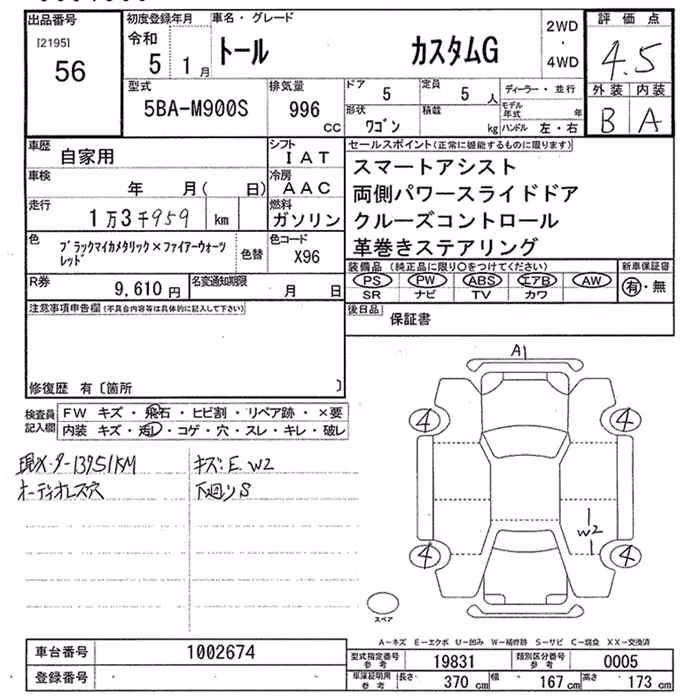 出品番号
[2195]
56
初度登録年月
令和
5 1月
車名・グレード
トール カスタムG
2WD
・
4WD
評価点
4.5
外装 内装
B A
型式
5BA-M900S
排気量
996
cc
ドア
5
定員
5 人
ディーラー・並行
モデル年式 年
形状
ワゴン
積載
kg
ハンドル 左・右
車歴
自家用
シフト
IAT
セールスポイント(正常に機能するものに限ります)
スマートアシスト
両側パワースライドドア
クルーズコントロール
革巻きステアリング
車検
年 月( 日)
冷房
AAC
走行
1万3千959 km
燃料
ガソリン
色
ブラックマイカメタリック×ファイアークォーツ
レッド
色替
色コード
X96
装備品 (純正品に限り○をつけてください)
PS PW ABS エアB AW
SR ナビ TV カワ
新車保証書
有・無
R券
9,610 円
名変通知期限
月 日
後日品
保証書
注意事項申告欄(不具合内容等は具体的に記入して下さい)
修復歴 有〔箇所 〕
検査員
記入欄
FW キズ・飛石・ヒビ割・リペア跡・×要
内装 キズ・汚レ・コゲ・穴・スレ・キレ・破レ
現メーター13951KM
オーディオレス穴
キズ:E.W2
下廻りS
A1
4
4
W2
4
4
スペア
A−キズ E−エクボ U−凹み W−補修跡 S−サビ C−腐食 XX−交換済
車台番号
1002674
登録番号
型式指定番号
参考
19831
類別区分番号
参考
0005
車庫証明用
参考
長さ
370 cm
幅
167 cm
高さ
173 cm